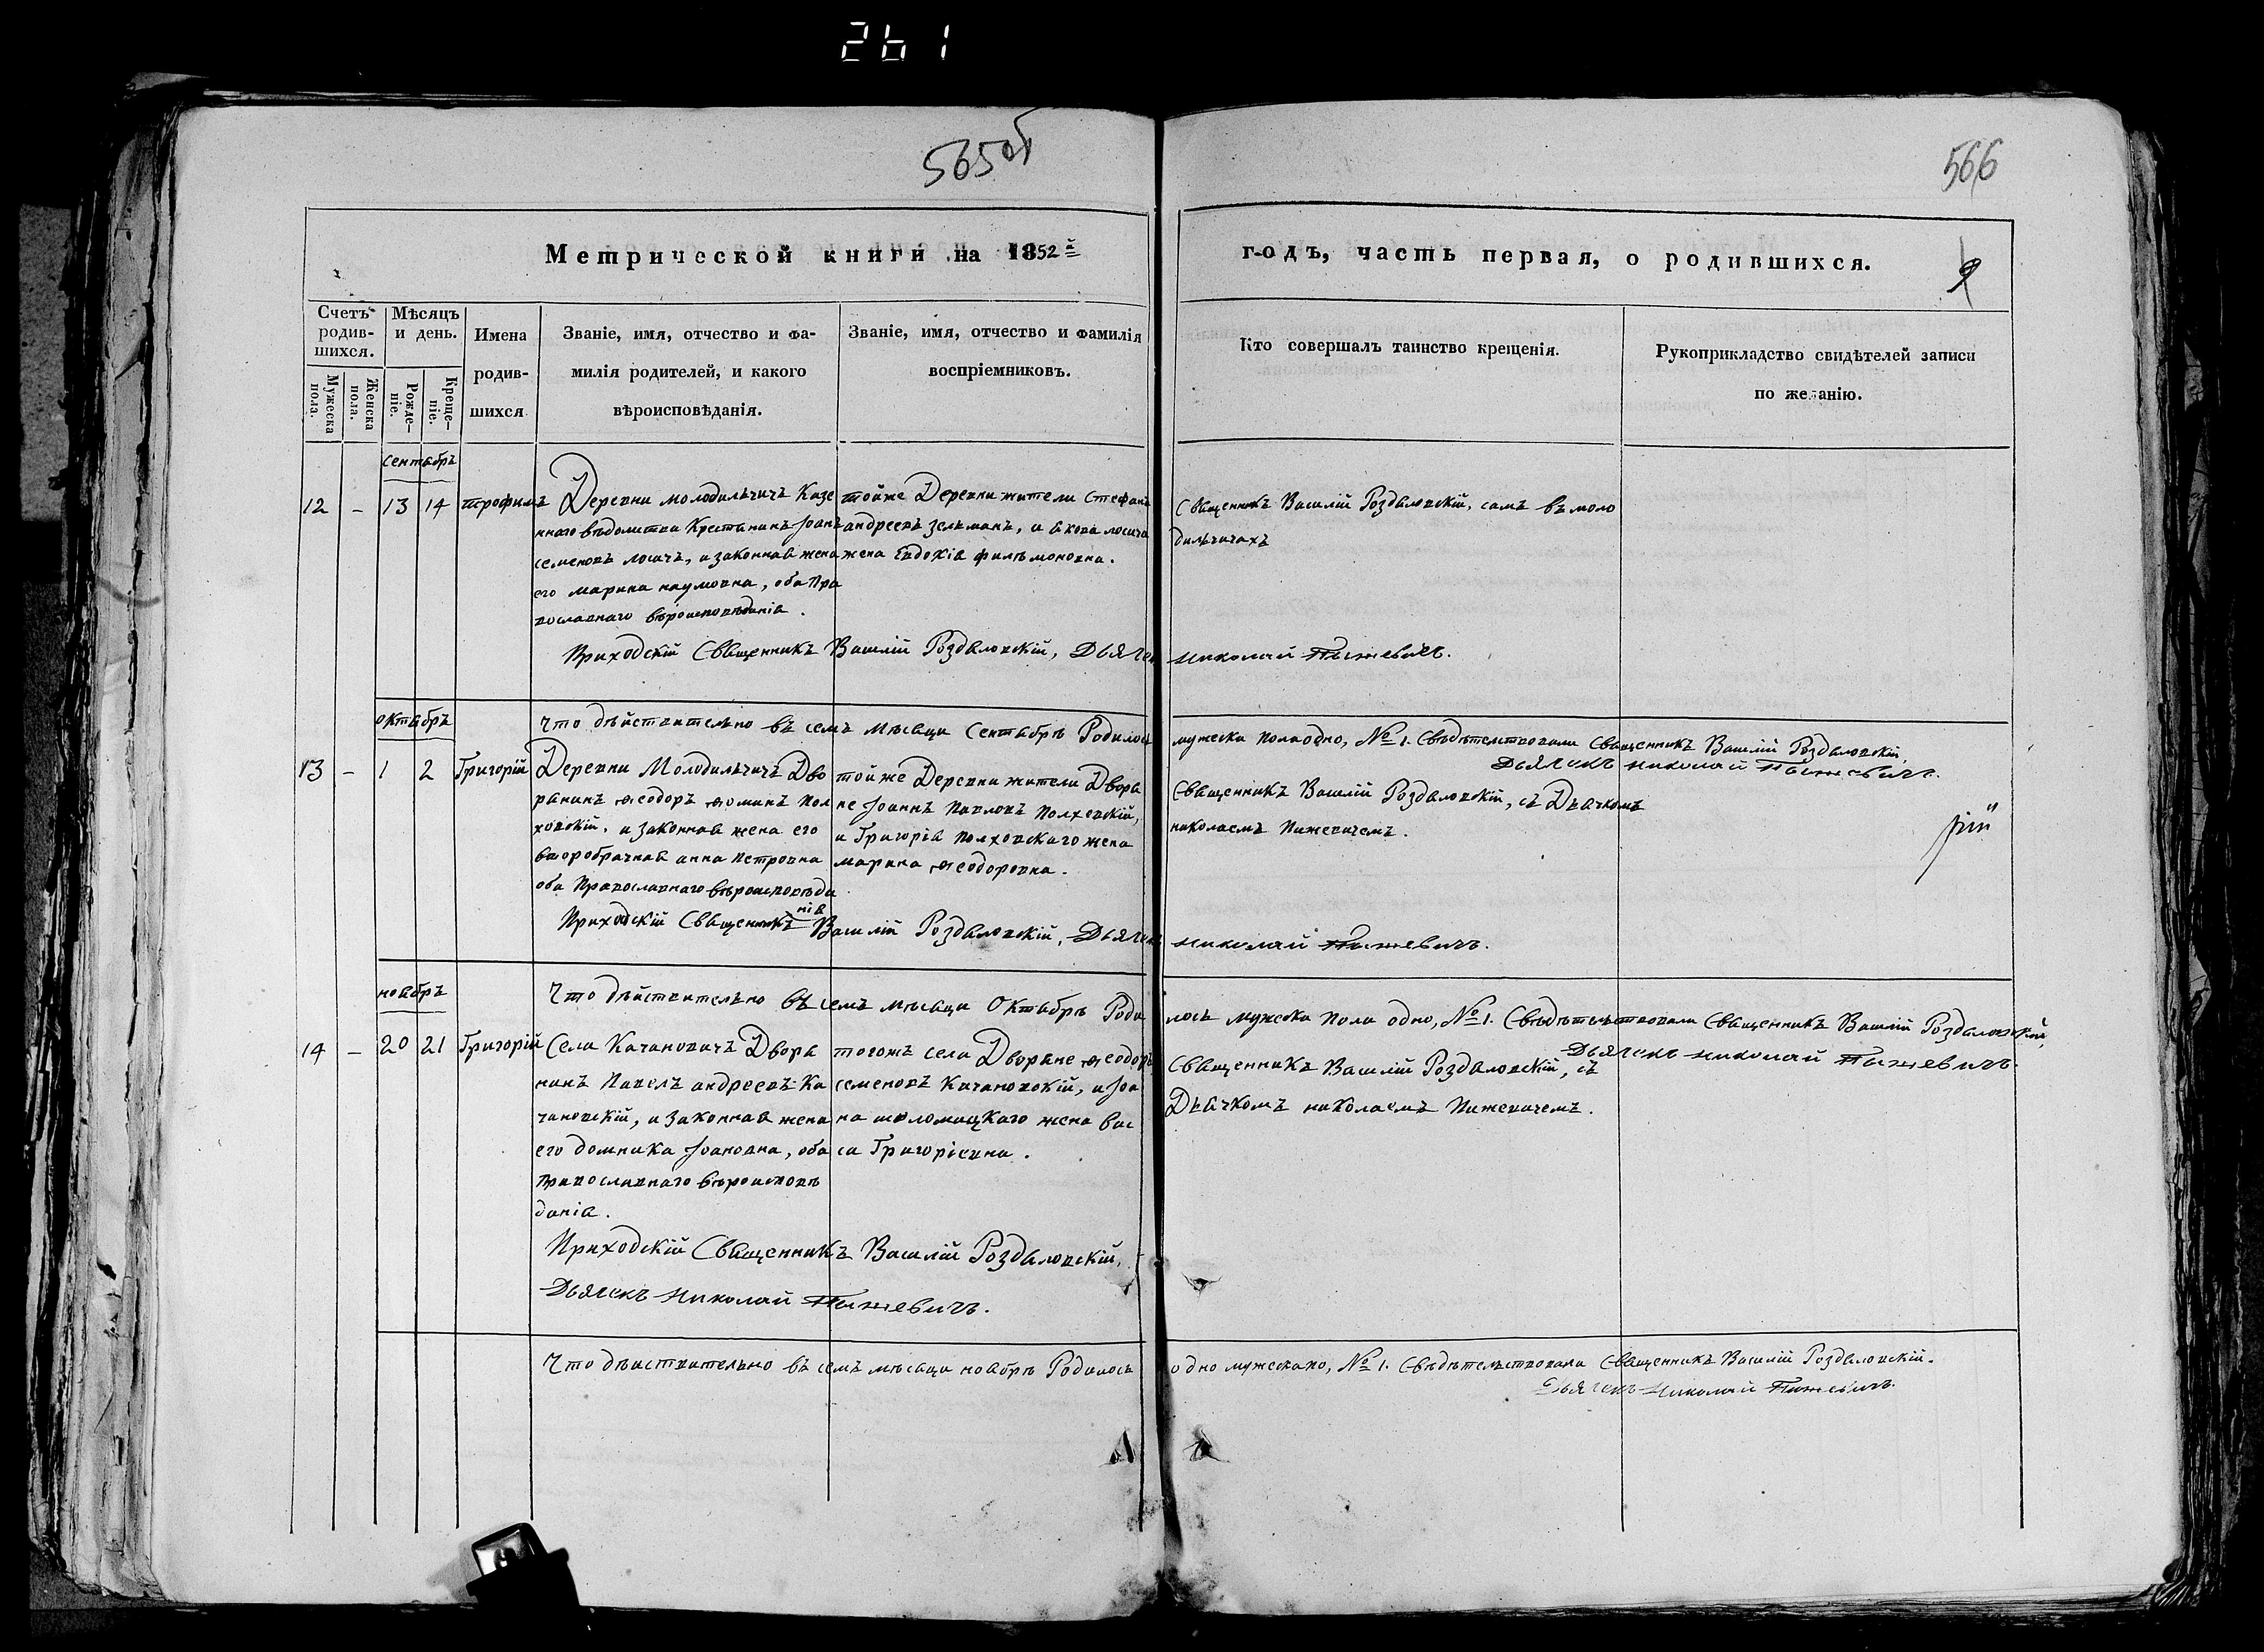 261
565об
566
Метрической книги на 1852й годъ, часть первая, о родившихся.
9
Счетъ родив-шихся.
Мужеска пола.
Женска пола.
Мѣсяцъ и день.
Рожде-ніе.
Креще-ніе.
Имена родив-шихся
Званіе, имя, отчество и фа-
милія родителей, и какого
вѣроисповѣданія.
Званіе, имя, отчество и фамилія
воспріемниковъ.
Кто совершалъ таинство крещенія.
Рукоприкладство свидѣтелей записи
по желанію.
сентабръ
12 - 13 14 трофимъ
Деревни молодильчичъ Казе
ннаго вѣдомства Крестьянинъ Іоанъ
семеновъ лосичъ, и законная жена
его марина наумовна, оба Пра
вославнаго вѣроисповѣданія.
тойже Деревни жители Стефанъ
андреевъ зельманъ, и акова лосича
жена Евдокія филѣмоновна.
Священникъ Василій Роздяловскій, самъ въ моло
дильчичахъ
Приходскій Священникъ Василій Роздяловскій, Дьячек николай Пыжевичъ.
октябръ
Что дѣйствительно въ семъ мѣсяци Сентабрѣ Родилось мужеска пола одно, № 1. Свѣдѣтельствовали Священникъ Василій Роздяловскій,
Дьячекъ николай Пыжевичъ.
13 - 1 2 Григорій
Деревни Молодильчичъ Дво
рянинъ Феодоръ Фоминъ Пол
ховскій, и законная жена его
второбрачная анна петровна
оба Православнаго вѣроисповѣда
нія
тойже Деревни жители Дворя
не Іоаннъ Павловъ Полховскій,
и Григорія Полховскаго жена
марина Феодоровна.
Священникъ Василій Роздяловскій, съ Дьячкомъ
николаемъ Пижевичемъ.
Приходскій Священникъ Василій Роздяловскій, Дьячекъ николай Пыжевичъ.
ноябръ
Что дѣйствительно въ семъ мѣсяци Октябрѣ Роди лось мужеска пола одно, № 1. Свѣдѣтельствовали Священникъ Василій Роздяловскій,
Дьячекъ николай Пыжевичъ.
14 - 20 21 Григорій
Села Качановичъ Дворя
нинъ Павелъ андреевъ Ка
чановскій, и законная жена
его домника Іоановна, оба
православнаго вѣроисповѣ
данія.
тогожъ села Дворяне Феодоръ
семеновъ Качановскій, и Іоа
на шоломицкаго жена вас
са Григоріевна.
Священникъ Василій Роздяловскій, съ
Дьячкомъ николаемъ Пижевичемъ.
Приходскій Священникъ Василій Роздяловскій,
Дьячекъ николай Пыжевичъ.
Что дѣиствительно въ семъ мѣсяци ноябрѣ Родилось одно мужескапо, № 1. Свѣдѣтельствовали Священникъ Василій Роздяловскій.
Дьячекъ николай Пыжевичъ.